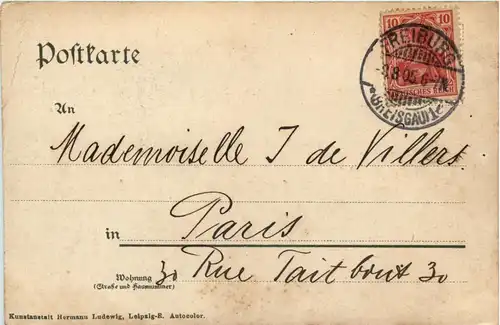 Postkarte
10 10
FREIBURG
8.05.6-7
DEUTSCHES REICH
BREISGAU 1
An
Mademoiselle J de Villers
in Paris
Wohnung 30 Rue Taitbout 30
(Straße und Hausnummer)
Kunstanstalt Hermann Ludewig, Leipzig-R. Autocolor.